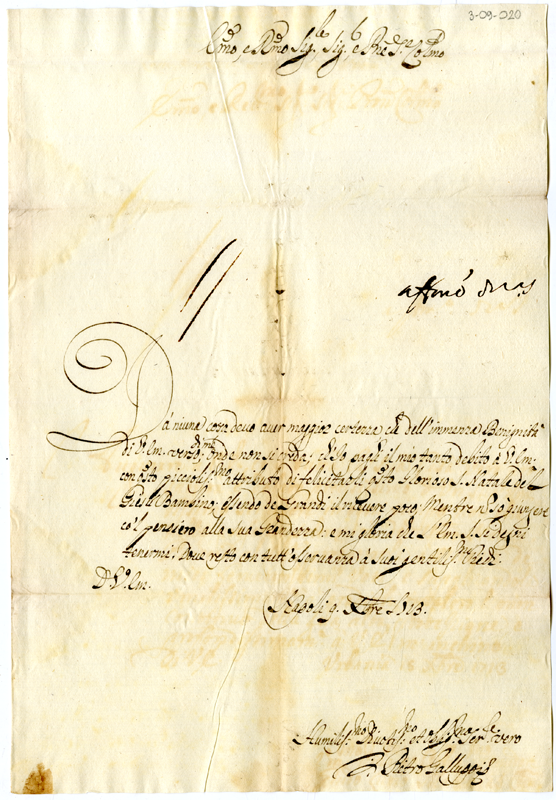 3-09-020
Emo, e Rmo Sig.re, Sig.r e Pne Colmo
affmo
Da niuna cosa devo aver maggior certezza che dell'immenza Benignità
di V. Em. verso onde non si creda, ch'Io paghi il mio tanto debito à V. Em.
con qsto picciolis.mo attributo di felicitarli qsto Glorioso S. Natale del
Giesù Bambino: essendo de Grandi il ricevere poco: Mentre nō sò giungere
co'l pensiero alla Sua Grandezza: e mi gloria che V. Em. si degni
tenermi: Dove resto con tutt'osservanza à suoi gentilis.mi Piedi:
D. V. Em.
Napoli 9. Xbre 1713.
Humilis.mo Divotis.mo et Oblig.mo Ser.re vero
D. Pietro Galluppi